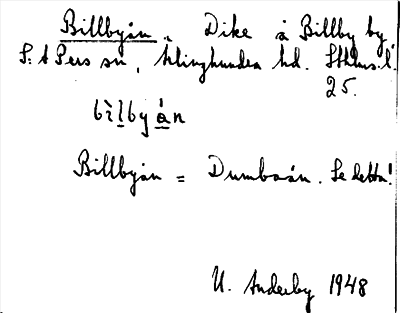 Billbyån = Dike å Billby by
S:t Pers sn, Klinghundra hd. Sthlms. l.
25.
bìlbyån
Billbyån = Dumboån. Se detta!
U. Anderby 1948